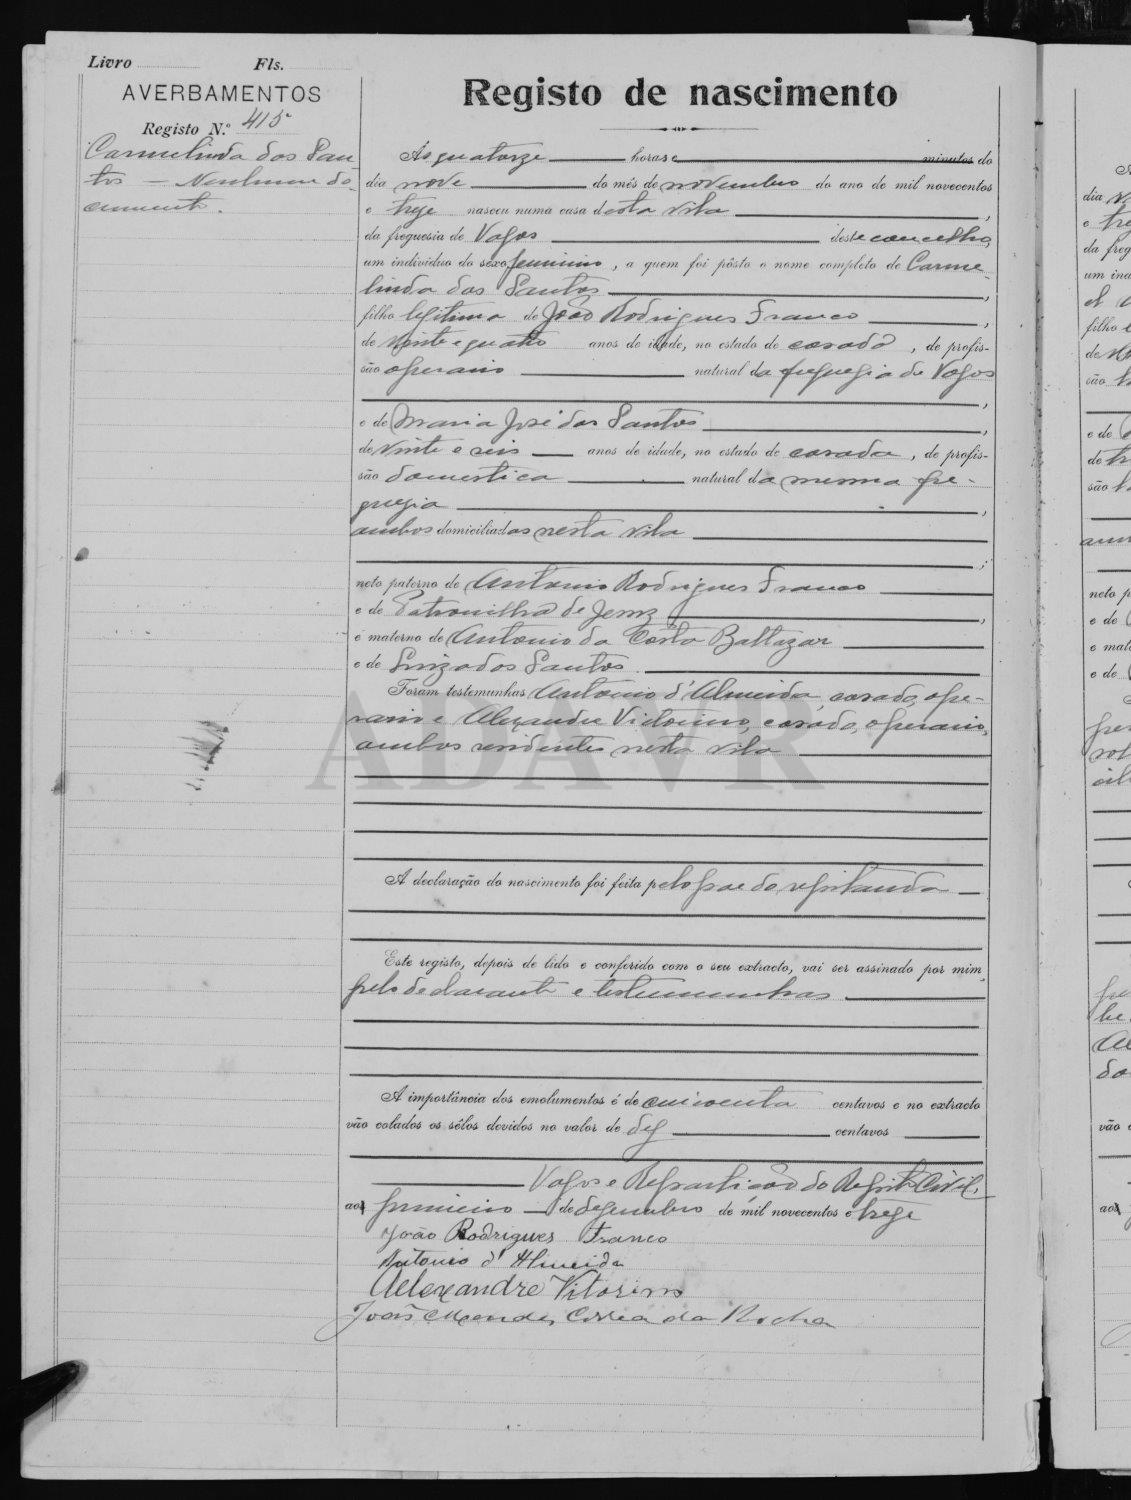 Livro Fls.
AVERBAMENTOS
Registo N.º 415
Carmelinda dos San-
tos — Nenhum do-
cumento.
Registo de nascimento
Ás quatorze horas e minutos do
dia nove do mês de novembro do ano de mil novecentos
e treze nasceu numa casa desta vila,
da freguesia de Vagos deste concelho,
um indivíduo do sexo feminino, a quem foi pôsto o nome completo de Carme-
linda dos Santos,
filho legitima de João Rodrigues Franco,
de vinte e quatro anos de idade, no estado de casado, de profis-
são operario natural da freguezia de Vagos,
e de Maria José dos Santos,
de vinte e seis anos de idade, no estado de casada, de profis-
são domestica natural da mesma fre-
guezia,
ambos domiciliados nesta vila;
neto paterno de Antonio Rodrigues Franco
e de Patronilha de Jesuz,
e materno de Antonio da Costa Baltazar
e de Luiza dos Santos.
Foram testemunhas Antonio d'Almeida, casado, ope-
rario e Alexandre Vidorino, casado, operario,
ambos residentes nesta vila
ADAVR
A declaração do nascimento foi feita pelo pae da registanda
Este registo, depois de lido e conferido com o seu extracto, vai ser assinado por mim,
pelo declarante e testemunhas
A importância dos emolumentos é de cincoenta centavos e no extracto
vão colados os sêlos devidos no valor de dez centavos
Vagos e Repartição do Registo Civil,
aos primeiro de dezembro de mil novecentos e treze
João Rodrigues Franco
Antonio d'Almeida
Alexandre Vitorino
João Mendes Correa da Rocha